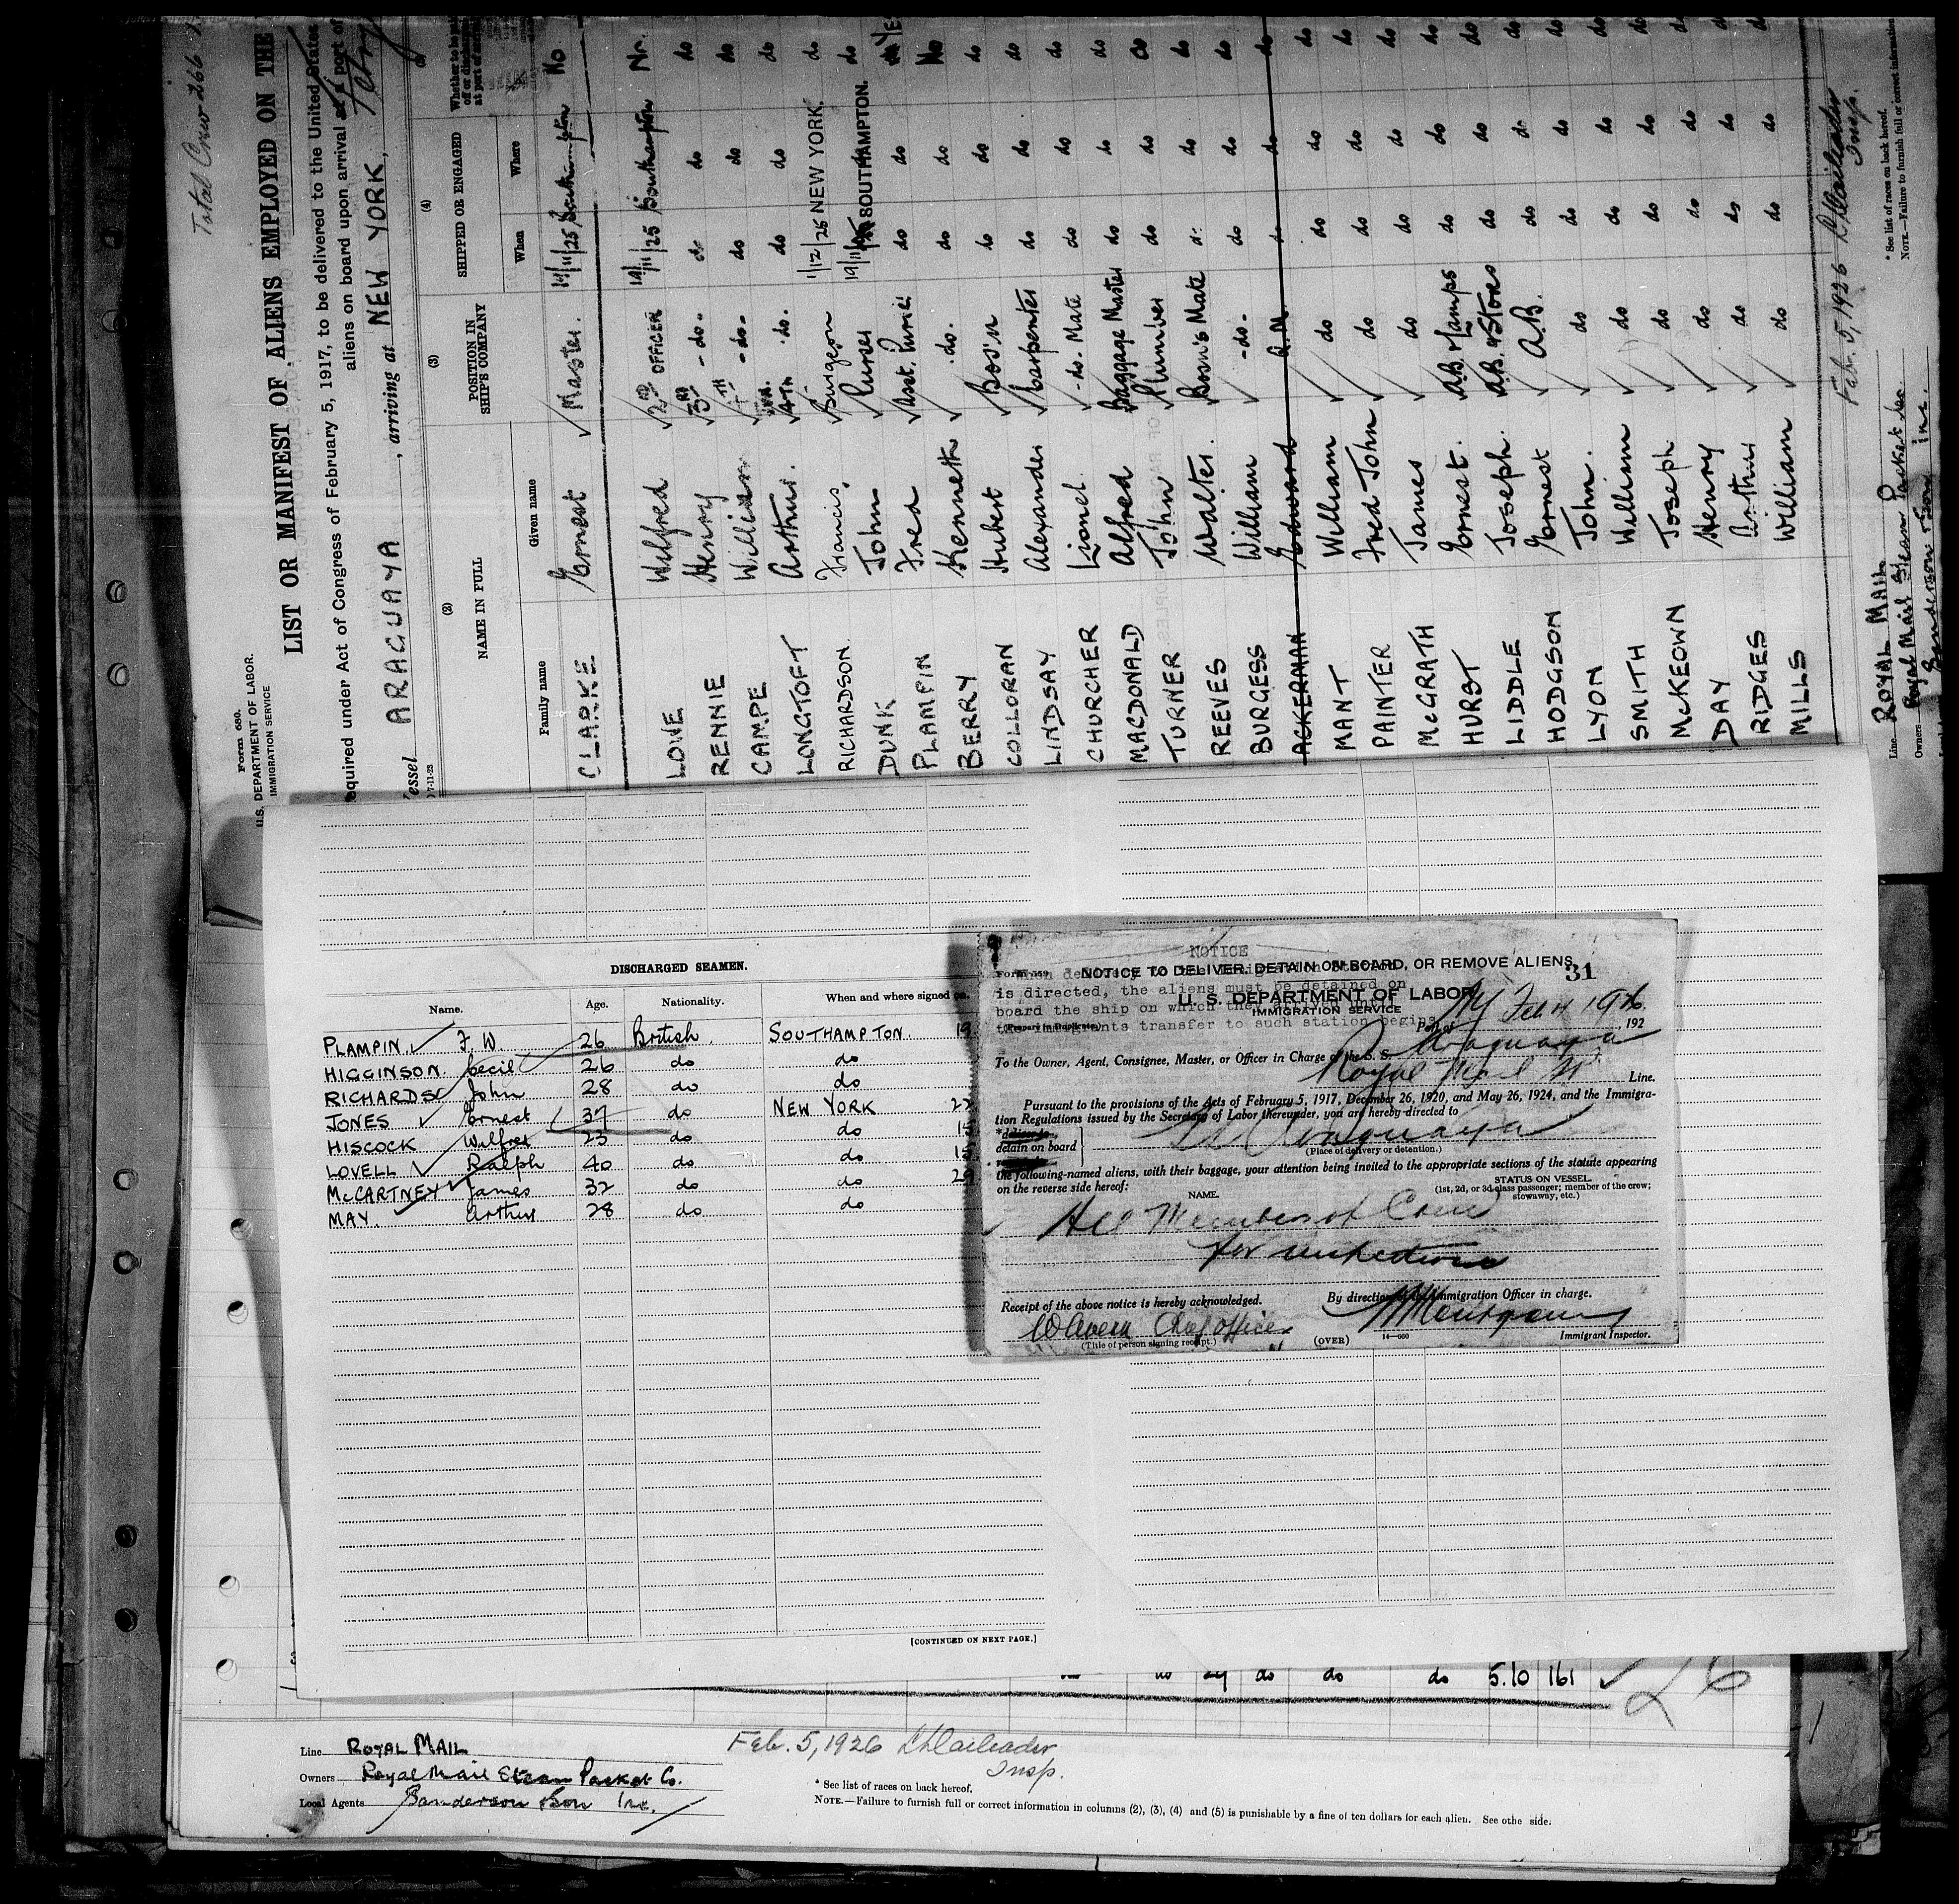 Total Crew 266
Form 680.
U.S. DEPARTMENT OF LABOR.
IMMIGRATION SERVICE
LIST OR MANIFEST OF ALIENS EMPLOYED ON THE
equired under Act of Congress of February 5, 1917, to be delivered to the United States
aliens on board upon arrival at a port of
essel ARAGUAYA, arriving at NEW YORK,
(2) (3) (4)
NAME IN FULL POSITION IN SHIP'S COMPANY SHIPPED OR ENGAGED
Family name Given name When Where
CLARKE Ernest Master. 19/11/25 Southampton No
LOWE Wilfred 2ND OFFICER 19/11/25 Southampton
RENNIE Henry 3RD -do- do do do
CAMPE William -do- do do do
LONGTOFT Arthur. 4TH .do. do do do
RICHARDSON. Francis. Surgeon 1/12/25 NEW YORK. do
DUNK John Purser 19/11/25 SOUTHAMPTON. do
PLAMPIN Fred Asst. Purser do do Yes
BERRY Kenneth .do. do do No
COLLORAN Hubert Bos'n do do do
LINDSAY Alexander Carpenter do do do
CHURCHER Lionel -do- Mate do do do
MACDONALD Alfred Baggage Master do do do
TURNER John Plumber do do do
REEVES Walter. Bosn's Mate do do do
BURGESS William -do- do do do
ACKERMAN Edward Q.M. do do do
MANT William do do do do
PAINTER Fred John do do do do
McGRATH James do do do do
HURST Ernest. A.B. & Lamps do do do
LIDDLE Joseph. A.B. & Stores do do do
HODGSON Ernest A.B. do do do
LYON John. do do do do
SMITH William do do do do
McKEOWN Joseph do do do do
DAY Henry do do do do
RIDGES Arthur do do do do
MILLS William do do do do
Feb. 5, 1926 Insp.
Line ROYAL MAIL
Owners Royal Mail Steam Packet Co.
Sanderson & Son Inc.
* See list of races on back hereof.
NOTE.—Failure to furnish full or correct information
DISCHARGED SEAMEN.
Name. Age. Nationality. When and where signed on.
PLAMPIN. F. W. 26 British. SOUTHAMPTON. 19
HIGGINSON. Cecil 26 do do
RICHARDS John 28 do do
JONES Ernest 37 do NEW YORK 22
HISCOCK Wilfred 23 do do 15
LOVELL Ralph 40 do do 15
McCARTNEY James 32 do do 29
MAY. Arthur 28 do do
[CONTINUED ON NEXT PAGE.]
NOTICE
is directed, the aliens must be detained on
board the ship on which they arrived until
transfer to such station begins
NOTICE TO DELIVER, DETAIN ON BOARD, OR REMOVE ALIENS
31
U. S. DEPARTMENT OF LABOR
IMMIGRATION SERVICE
(Prepare in Duplicate)
Port of NY Feb 4 1926, 192
To the Owner, Agent, Consignee, Master, or Officer in Charge of the S. S. Araguaya
Royal Mail Line.
Pursuant to the provisions of the Acts of February 5, 1917, December 26, 1920, and May 26, 1924, and the Immigra-
tion Regulations issued by the Secretary of Labor thereunder, you are hereby directed to
*deliver to
detain on board
Araguaya
(Place of delivery or detention.)
the following-named aliens, with their baggage, your attention being invited to the appropriate sections of the statute appearing
on the reverse side hereof:
NAME.
STATUS ON VESSEL.
(1st, 2d, or 3d class passenger; member of the crew;
stowaway, etc.)
All Members of Crew
for inspection
Receipt of the above notice is hereby acknowledged.
By direction of the Immigration Officer in charge.
Chief Officer
(Title of person signing receipt.)
(OVER)
14—660
Immigrant Inspector.
do 29 do do do 5.10 161
26
Line ROYAL MAIL
Owners Royal Mail Steam Packet Co.
Local Agents Sanderson & Son Inc.
Feb. 5, 1926
Insp.
* See list of races on back hereof.
NOTE.—Failure to furnish full or correct information in columns (2), (3), (4) and (5) is punishable by a fine of ten dollars for each alien. See othe side.